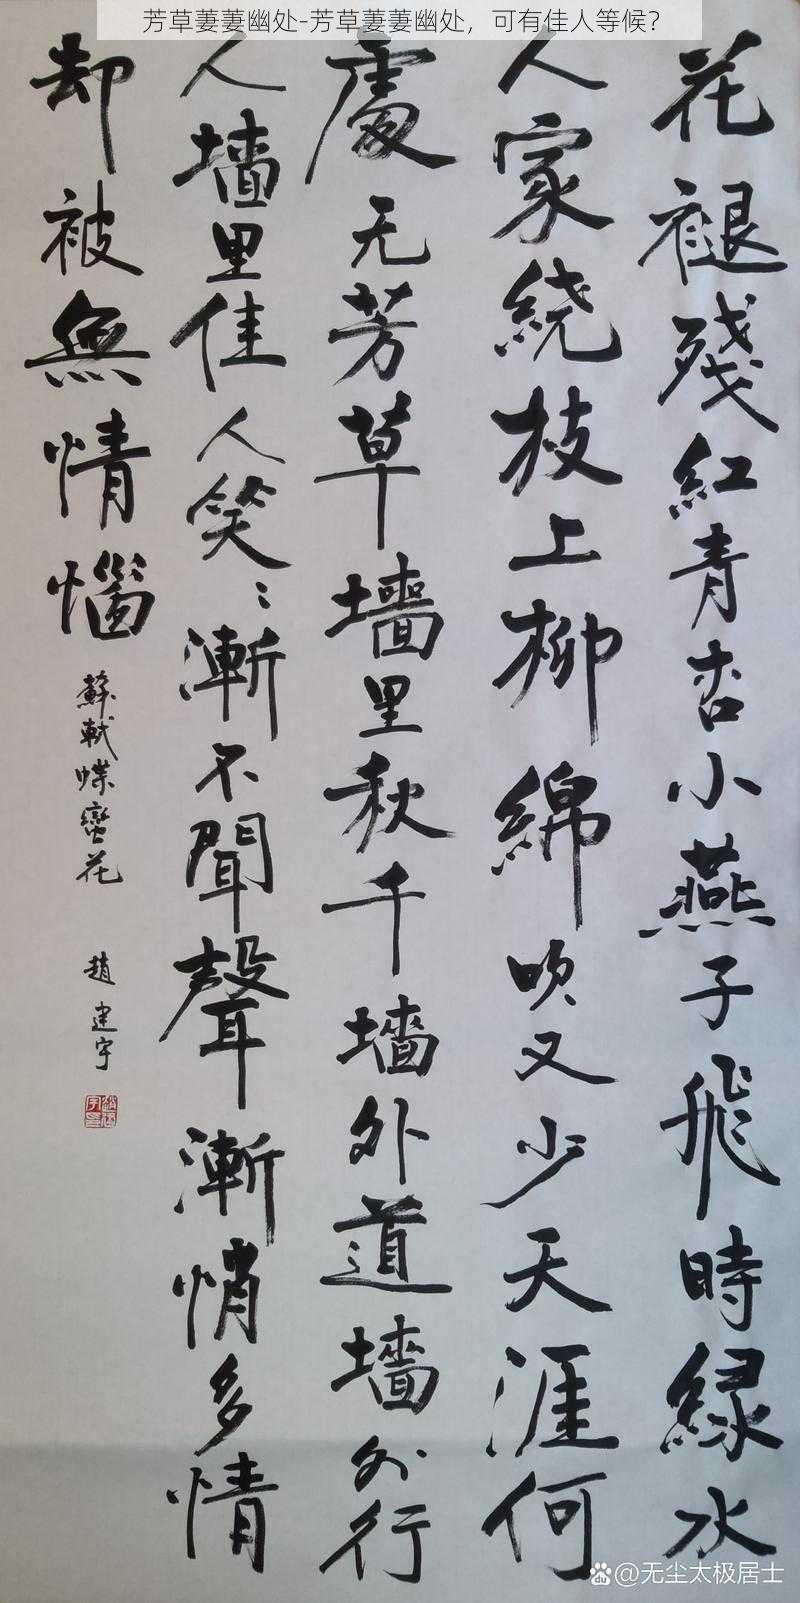 芳草萋萋幽处-芳草萋萋幽处，可有佳人等候？
花褪殘紅青杏小燕子飛時緑水
人家繞枝上柳綿吹又少天涯何
處无芳草墙里秋千墙外道墙外行
人墙里佳人笑〻漸不聞聲漸悄多情
却被無情惱
蘇軾蝶戀花
趙建宇
@无尘太极居士